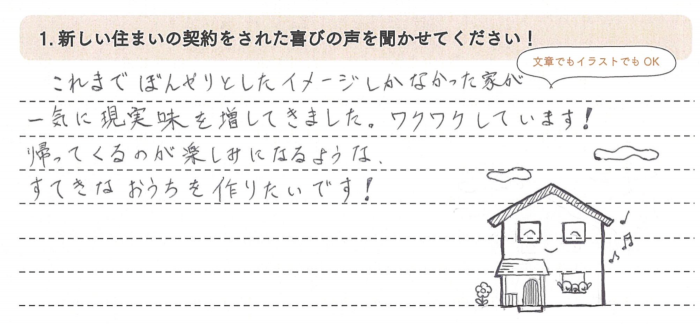 1. 新しい住まいの契約をされた喜びの声を聞かせてください！
文章でもイラストでも OK
これまで ぼんやりとしたイメージしかなかった家が
一気に現実味を増してきました。ワクワクしています！
帰ってくるのが楽しみになるような、
すてきなおうちを作りたいです！